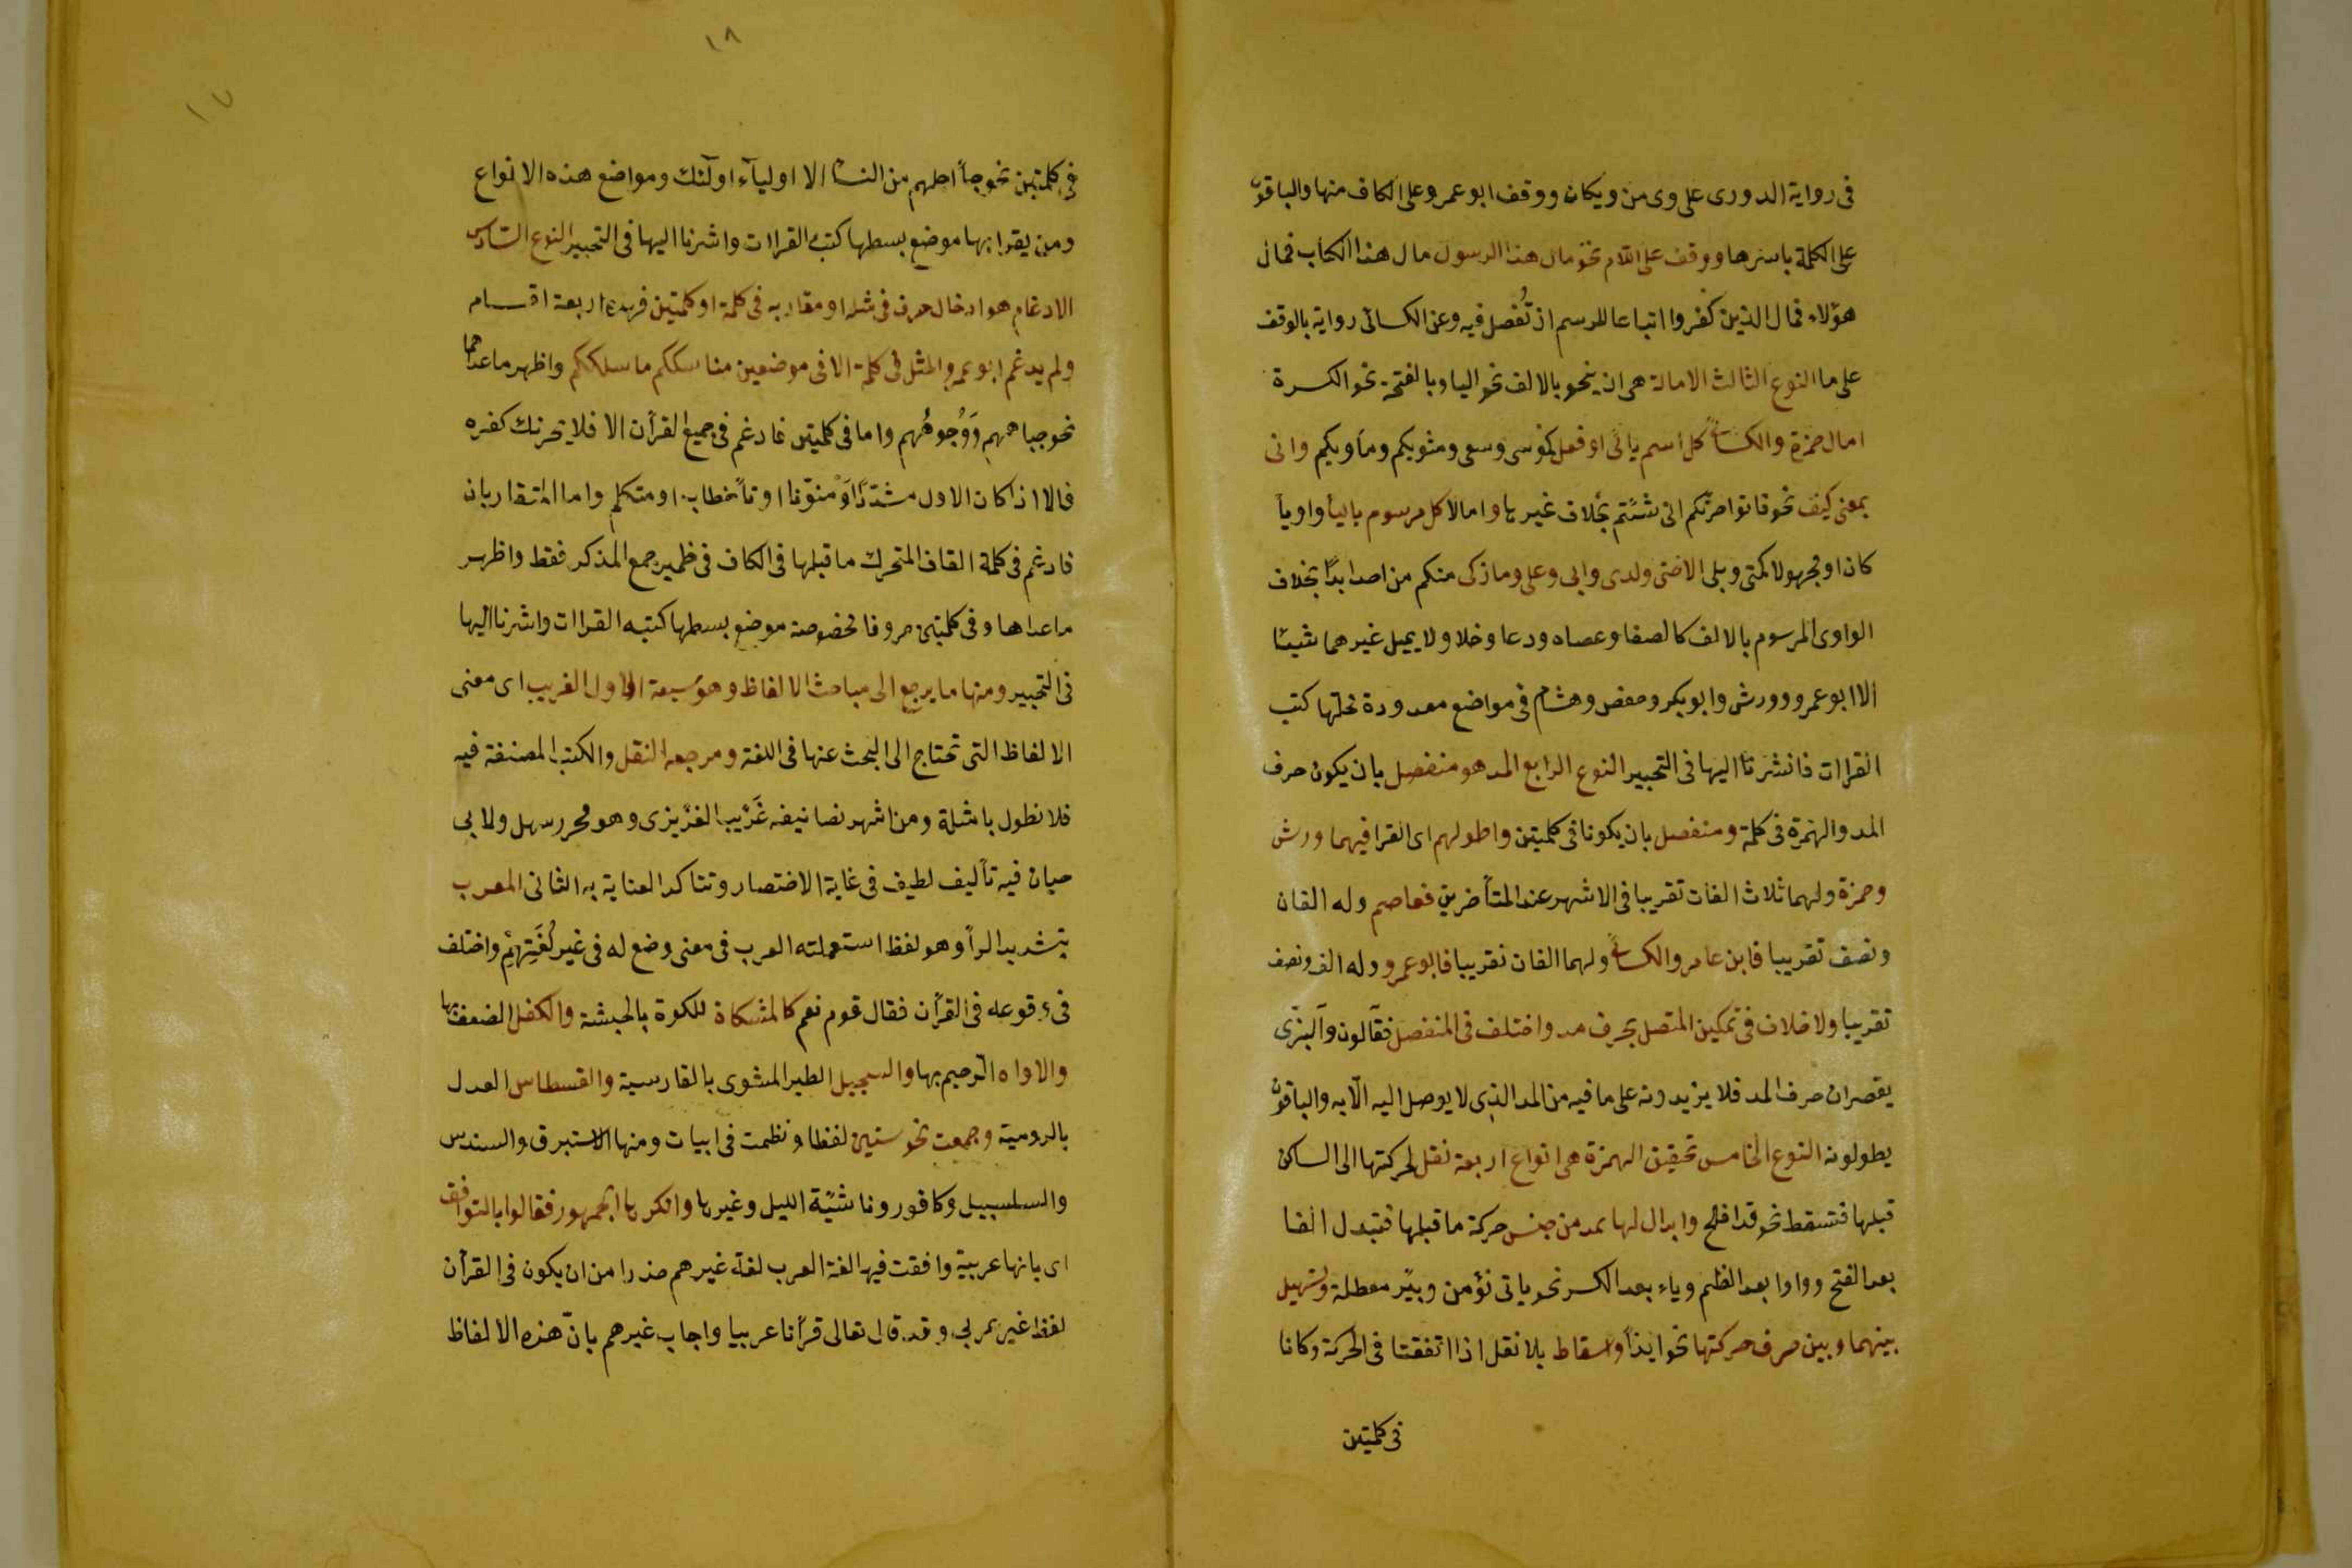 فى رواية الدورى على وى من ويكان ووقف ابو عمرو على الكاف منها والباقون
على الكلمة باسرها ووقف على اللام نحو مال هذا الرسول مال هذا الكتاب فمال
هؤلاء فمال الذين كفروا اتباعا للرسم اذ تُفصل فيه وعن الكسائى رواية بالوقف
على ما النوع الثالث الامالة هى ان ينحو بالالف نحو اليا وبالفتحة نحو الكسرة
امال حمزة والكسائى كل اسم يائى او فعل كموسى وسعى ومثويكم ومأويكم وانى
بمعنى كيف نحو فاتوا حرثكم انى شئتم بخلاف غيرها وامالا كل مرسوم باليأ واويأ
كان او مجهولا كمتى وبلى الا حتى ولدى والى وعلى وما زكى منكم من احد ابدًا بخلاف
الواوى المرسوم بالالف كالصفا وعصاه ودعا وخلا ولا يميل غيرهما شيئا
الا ابو عمرو وورش وابو بكر وحفص وهشام فى مواضع معدودة محلها كتب
القراات فاشرنا اليها فى التحبير النوع الرابع المد هو منفصل بان يكون حرف
المد والهمزة فى كلمة ومنفصل بان يكونا فى كلمتين واطولهم اى القرا فيهما ورش
وحمزة ولهما ثلاث الفات تقريبا فى الاشهر عند المتأخرين فعاصم وله الفان
ونصف تقريبا فابن عامر والكسائى ولهما الفان تقريبا فابو عمرو وله الف ونصف
تقريبا ولا خلاف فى تمكين المتصل بحرف مد واختلف فى المنفصل فقالون والبزّى
يقصران حرف المد فلا يزيدونه على ما فيه من المد الذى لا يوصل اليه الّا به والباقون
يطولونه النوع الخامس تحقيق الهمزة هى انواع اربعة نقل لحركتها الى الساكن
قبلها فتسقط نحو قد افلح وابدال لها بمد من جنس حركة ما قبلها فتبدل الفا
بعد الفتح وواوا بعد الظم وياء بعد الكسر نحو ياتى نؤمن وبئر معطلة وتسهيل
بينهما وبين حرف حركتها نحو ايذأ واسقاط بلا نقل اذا اتفقتا فى الحركة وكانا
فى كلمتين
١٨
١٧
فى كلمتين نحو جأ اجلهم من النسأ الا اوليآء اولئك ومواضع هذه الانواع
ومن يقرا بها موضع بسطها كتب القراات واشرنا اليها فى التحبير النوع السّادس
الادغام هو ادخال حرف فى مثله او مقاربه فى كلمة او كلمتين فهذه اربعة اقسام
ولم يدغم ابو عمرو المثل فى كلمة الا فى موضعين مناسككم ما سلككم واظهر ما عداهما
نحو جباههم وَوُجوهُهم واما فى كلمتين فادغم فى جميع القرأن الا فلا يحزنك كفره
فالا اذا كان الاول مشدّدًا اوْ منوّنا او تأ خطاب او متكلم واما المتقاربان
فادغم فى كلمة القاف المتحرك ما قبلها فى الكاف فى ظمير جمع المذكر فقط واظهر
ما عداها وفى كلمتين حروفا مخصوصة موضع بسطها كتب القراات واشرنا اليها
فى التحبير ومنها ما يرجع الى مباحث الالفاظ وهو سبعة الاول الغريب اى معنى
الالفاظ التى تحتاج الى البحث عنها فى اللغة ومرجعه النقل والكتب المصنفة فيه
فلا نطول بامثلة ومن اشهر تصانيفه غَرْيب العزيزى وهو محرر سهل ولابى
حيان فيه تأليف لطيف فى غاية الاختصار وتتاكد العناية به الثانى المعرب
بتشديد الرأ وهو لفظ استعملته العرب فى معنى وضع له فى غير لُغَتِهمْ واختلف
فى وقوعه فى القرأن فقال قوم نعم كالمشكاة للكوة بالحبشة والكفل الضعف بها
والاواه الرحيم بها والسجيل الطير المشوى بالفارسية والقسطاس العدل
بالرومية وجمعت نحو ستين لفظا ونظمت فى ابيات ومنها الاستبرق والسندس
والسلسبيل وكافور وناشئة الليل وغيرها وانكرها الجمهور فقالوا بالتوافق
اى بانها عربية وافقت فيها لغة العرب لغة غيرهم حذرا من ان يكون فى القرأن
لفظ غير عربى وقد قال تعالى قرأنا عربيا واجاب غيرهم بانّ هذه الالفاظ